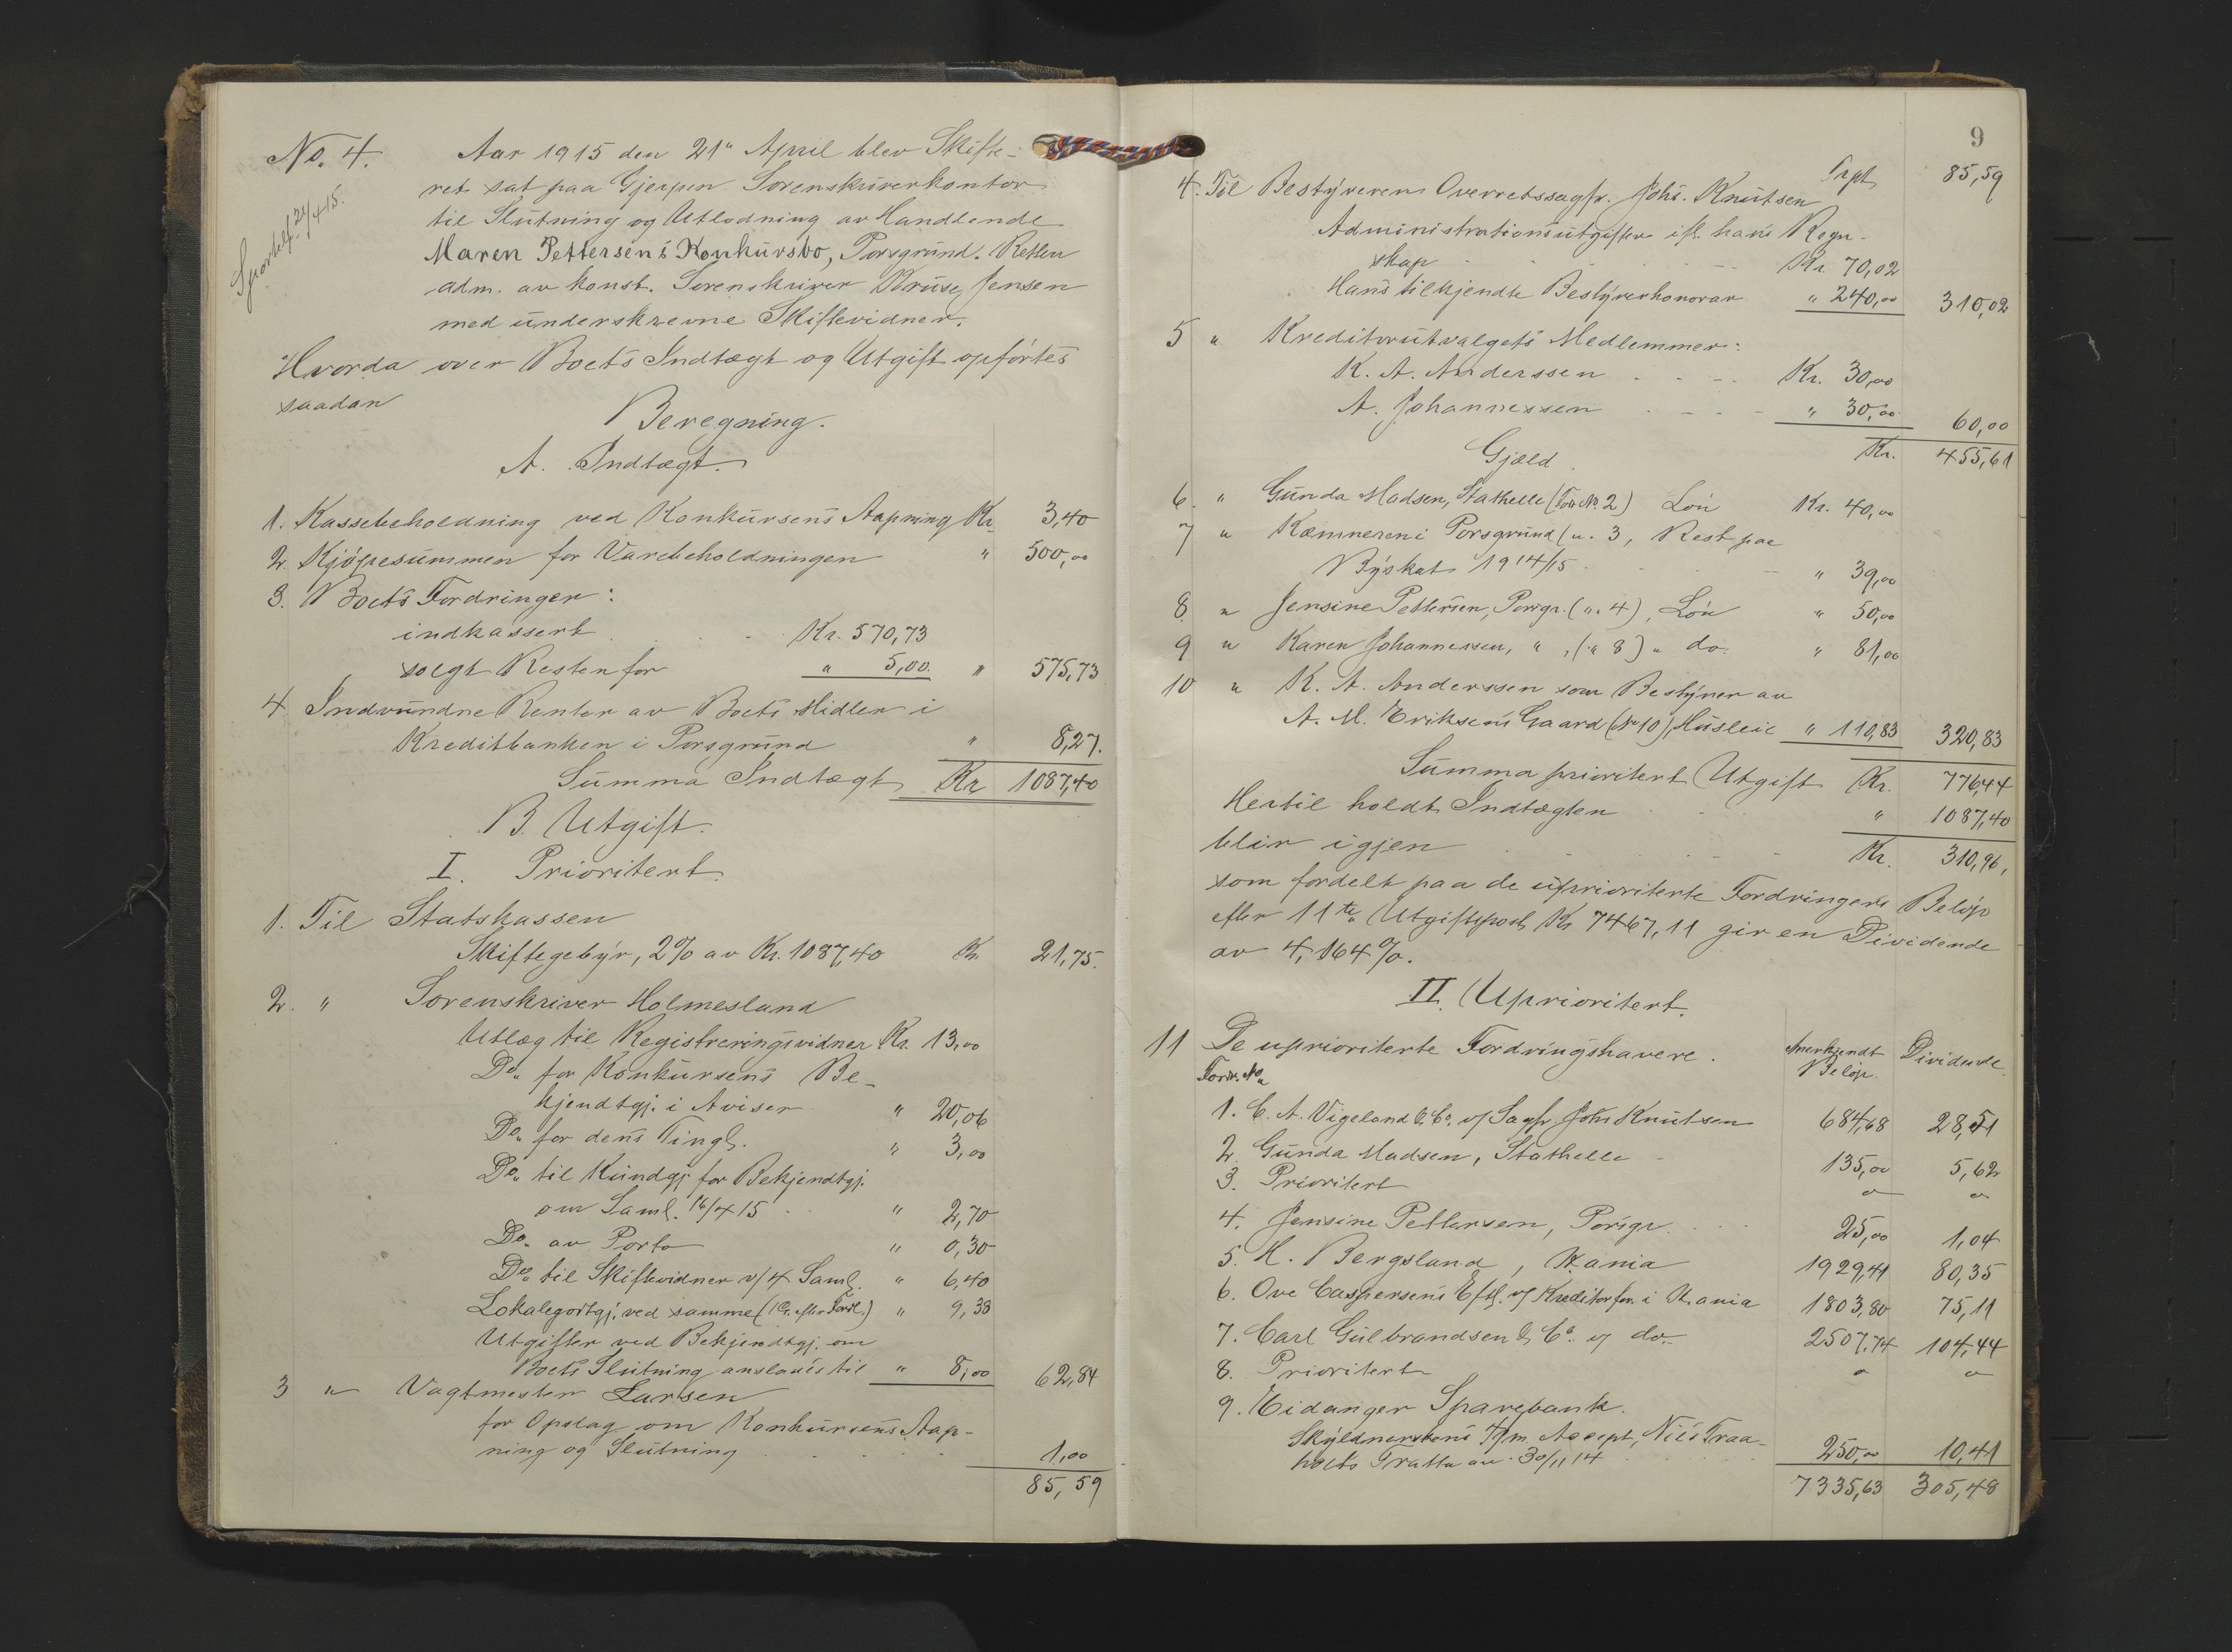 No. 4. Aar 1915 den 21" April blev Skifte-
Sportelf. 21/4 15.
ret sat paa Gjerpen Sorenskriverkontor
til Slutning og Utlodning av Handlende
Maren Pettersens Konkursbo, Porsgrund. Retten
adm. av konst. Sorenskriver Kruse Jensen
med underskrevne Skiftevidner.
Hvorda over Boets Indtægt og Utgift opførtes
saadan
Beregning.
A. Indtægt.
1. Kassebeholdning ved Konkursens Aapning Kr. 3,40
2. Kjøpesummen for Varebeholdningen " 500,00
3. Boets Fordringer:
indkassert . . . Kr. 570,73
solgt Resten for " 5,00. " 575,73
4 Indvundne Renter av Boets Midler i
Kreditbanken i Porsgrund " 8,27.
Summa Indtægt Kr 1087,40
B. Utgift.
I. Prioritert.
1. Til Statskassen
Skiftegebyr, 2% av Kr. 1087,40 Kr. 21,75.
2. " Sorenskriver Holmesland
Utlæg til Registreringsvidner Kr. 13,00
Do. for Konkursens Be-
kjendtgj. i Aviser " 20,06
Do. for dens Tingl. " 3,00
Do. til Kundgj. for Bekjendtgj.
om Saml. 16/4 15 . . " 2,70
Do. av Porto " 0,30
Do. til Skiftevidner v/ 4 Saml. " 6,40
Lokalegodtgj. ved samme (1 Kr. efter Fordl.) " 9,38
Utgifter ved Bekjendtgj. om
Boets Slutning anslaaes til " 8,00 62,84
3 " Vagtmester Larsen
for Opslag om Konkursens Aap-
ning og Slutning . . . . 1,00
85,59
9
Trpt. 85,59
4. Til Bestyreren Overretssagfr. Johs. Knutsen
Administrationsutgifter ifl. hans Regn-
skap . . . Kr. 70,02
Hans tilkjendte Bestyrerhonorar " 240,00 310,02
5 " Kreditorutvalgets Medlemmer:
K. A. Anderssen . . . Kr. 30,00
A. Johannessen . . . " 30,00 60,00
Kr. 455,61
Gjæld.
6. " Gunda Madsen, Stathelle (For. No. 2) Løn Kr. 40,00
7 " Kæmneren i Porsgrund (". 3, Rest paa
Byskat 1914/15 . . . " 39,00
8. " Jensine Pettersen, Porsgr. (". 4), Løn " 50,00
9 " Karen Johannessen, " , (" 8) " do. " 81,00
10 " K. A. Anderssen som Bestyrer av
A. M. Eriksens Gaard (No 10), Husleie " 110,83 320,83
Summa prioritert Utgift Kr. 776,44
Hertil holdt Indtægten . . " 1087,40
blir igjen . . . . Kr. 310,96,
som fordelt paa de uprioriterte Fordringers Beløp
efter 11te Utgiftspost Kr 7467,11 gir en Dividende
av 4,164%.
II. Uprioritert.
11 De uprioriterte Fordringshavere. Anerkjendt Beløp. Dividende.
Fordr. No.
1. C. A. Vigeland & Co. v/ Sagfr. Johs Knutsen 684,68 28,51
2. Gunda Madsen, Stathelle . 135,00 5,62
3. Prioritert " "
4. Jensine Pettersen, Porsgr. . . . 25,00 1,04
5. H. Bergsland, Kania 1929,41 80,35
6. Ove Caspersens Eftf. v/ Kreditorfor. i Kania 1803,80 75,11
7. Carl Gulbrandsen & Co. v/ do. 2507,74 104,44
8. Prioritert " "
9. Eidanger Sparebank.
Skyldnerskens 4/m. Accept, Nils Traa-
holts Tratta av 30/11 14 . . . 250,00 10,41
7335,63 305,48